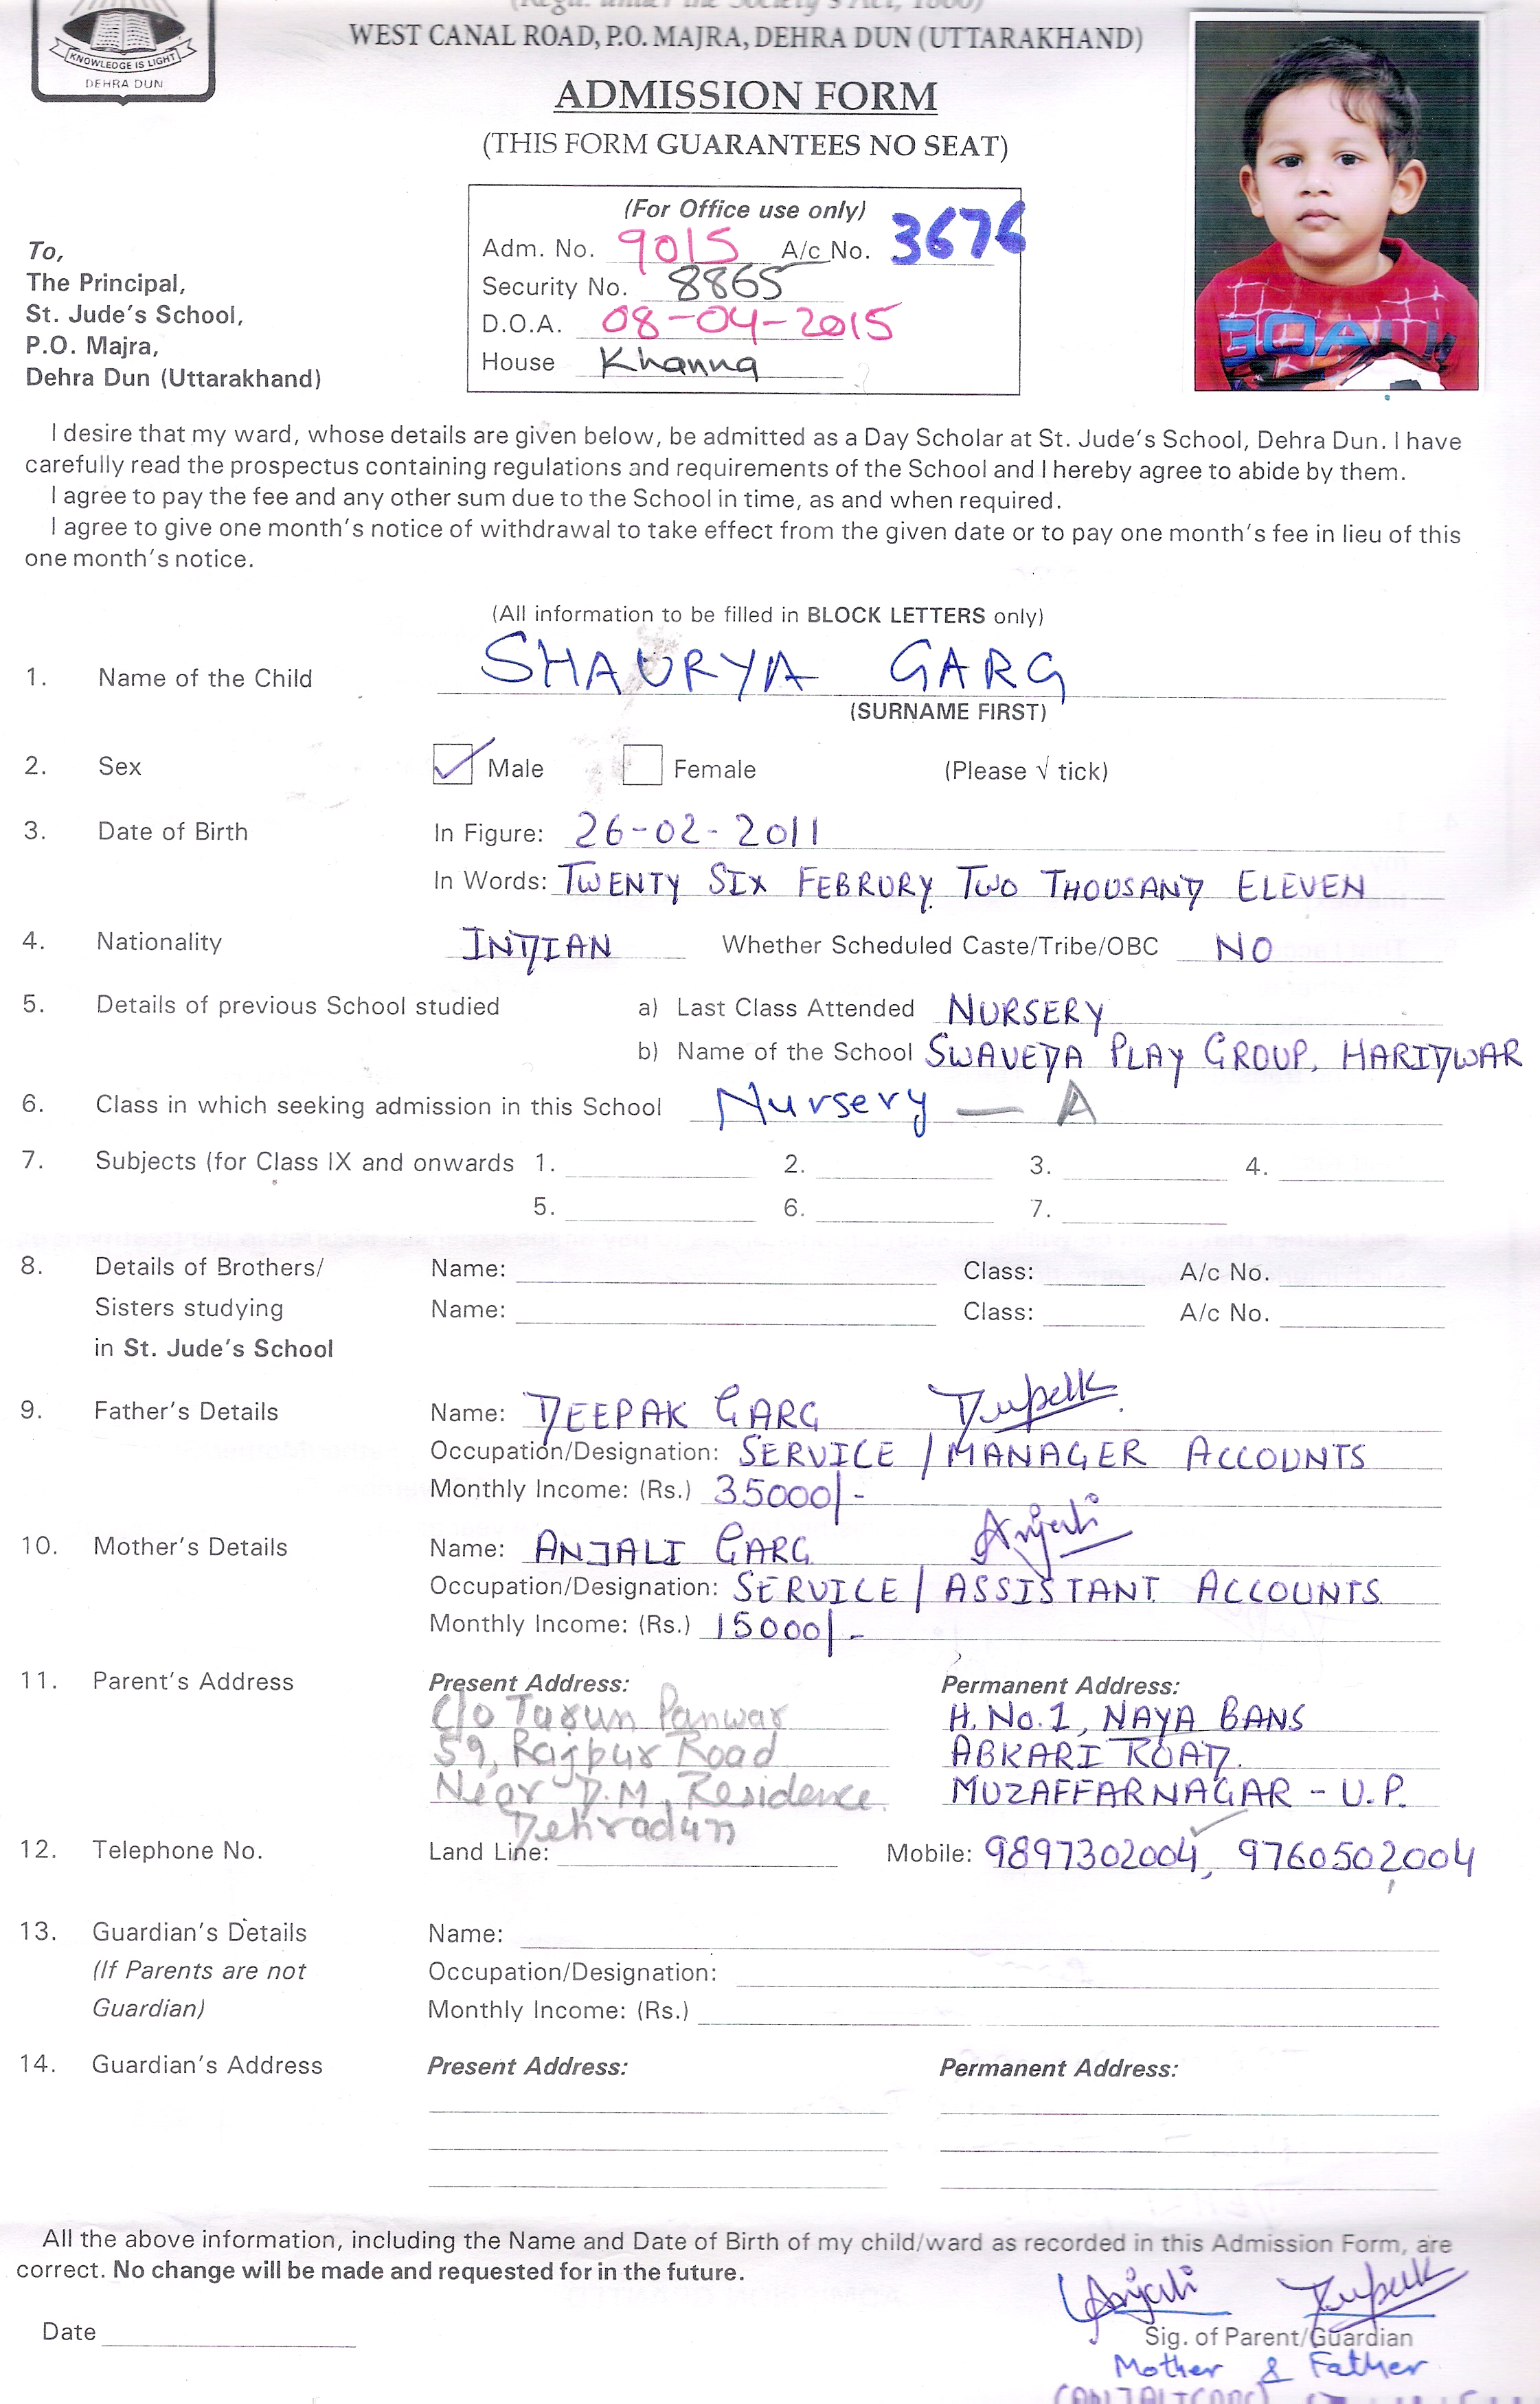 (Regd. under the Society's Act, 1860)
WEST CANAL ROAD, P.O. MAJRA, DEHRA DUN (UTTARAKHAND)
KNOWLEDGE IS LIGHT
DEHRA DUN
ADMISSION FORM
(THIS FORM GUARANTEES NO SEAT)
(For Office use only)
Adm. No. 9015 A/c No. 3676
Security No. 8865
D.O.A. 08-04-2015
House Khanna
To,
The Principal,
St. Jude's School,
P.O. Majra,
Dehra Dun (Uttarakhand)
GOAL
I desire that my ward, whose details are given below, be admitted as a Day Scholar at St. Jude's School, Dehra Dun. I have
carefully read the prospectus containing regulations and requirements of the School and I hereby agree to abide by them.
I agree to pay the fee and any other sum due to the School in time, as and when required.
I agree to give one month's notice of withdrawal to take effect from the given date or to pay one month's fee in lieu of this
one month's notice.
(All information to be filled in BLOCK LETTERS only)
1. Name of the Child SHAURYA GARG
(SURNAME FIRST)
2. Sex ✓ Male Female (Please √ tick)
3. Date of Birth In Figure: 26-02-2011
In Words: TWENTY SIX FEBRURY TWO THOUSAND ELEVEN
4. Nationality INDIAN Whether Scheduled Caste/Tribe/OBC NO
5. Details of previous School studied a) Last Class Attended NURSERY
b) Name of the School SWAVEDA PLAY GROUP, HARIDWAR
6. Class in which seeking admission in this School Nursery — A
7. Subjects (for Class IX and onwards 1. 2. 3. 4.
5. 6. 7.
8. Details of Brothers/ Name: Class: A/c No.
Sisters studying Name: Class: A/c No.
in St. Jude's School
9. Father's Details Name: DEEPAK GARG Deepak
Occupation/Designation: SERVICE / MANAGER ACCOUNTS
Monthly Income: (Rs.) 35000/-
10. Mother's Details Name: ANJALI GARG Anjali
Occupation/Designation: SERVICE / ASSISTANT ACCOUNTS
Monthly Income: (Rs.) 15000/-
11. Parent's Address Present Address: Permanent Address:
C/o Tarun Panwar H. No. 1, NAYA BANS
59, Rajpur Road ABKARI ROAD.
Near D.M. Residence MUZAFFARNAGAR - U.P.
Dehradun
12. Telephone No. Land Line: Mobile: 9897302004, 9760502004
13. Guardian's Details Name:
(If Parents are not Occupation/Designation:
Guardian) Monthly Income: (Rs.)
14. Guardian's Address Present Address: Permanent Address:
All the above information, including the Name and Date of Birth of my child/ward as recorded in this Admission Form, are
correct. No change will be made and requested for in the future.
Anjali Deepak
Date Sig. of Parent/Guardian
Mother & Father
(ANJALI GARG)